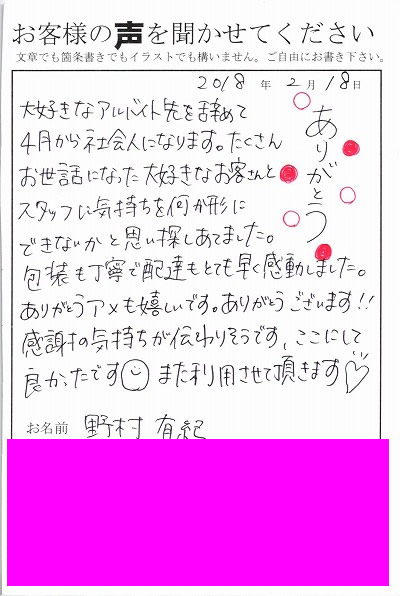 お客様の声を聞かせてください
文章でも箇条書きでもイラストでも構いません。ご自由にお書き下さい。
2018 年 2 月 18 日
ありがとう
大好きなアルバイト先を辞めて
4月から社会人になります。たくさん
お世話になった大好きなお客さんと
スタッフに気持ちを何か形に
できないかと思い探しあてました。
包装も丁寧で配達もとても早く感動しました。
ありがとうアメも嬉しいです。ありがとうございます!!
感謝の気持ちが伝わりそうです、ここにして
良かったです また利用させて頂きます
お名前 野村 有紀